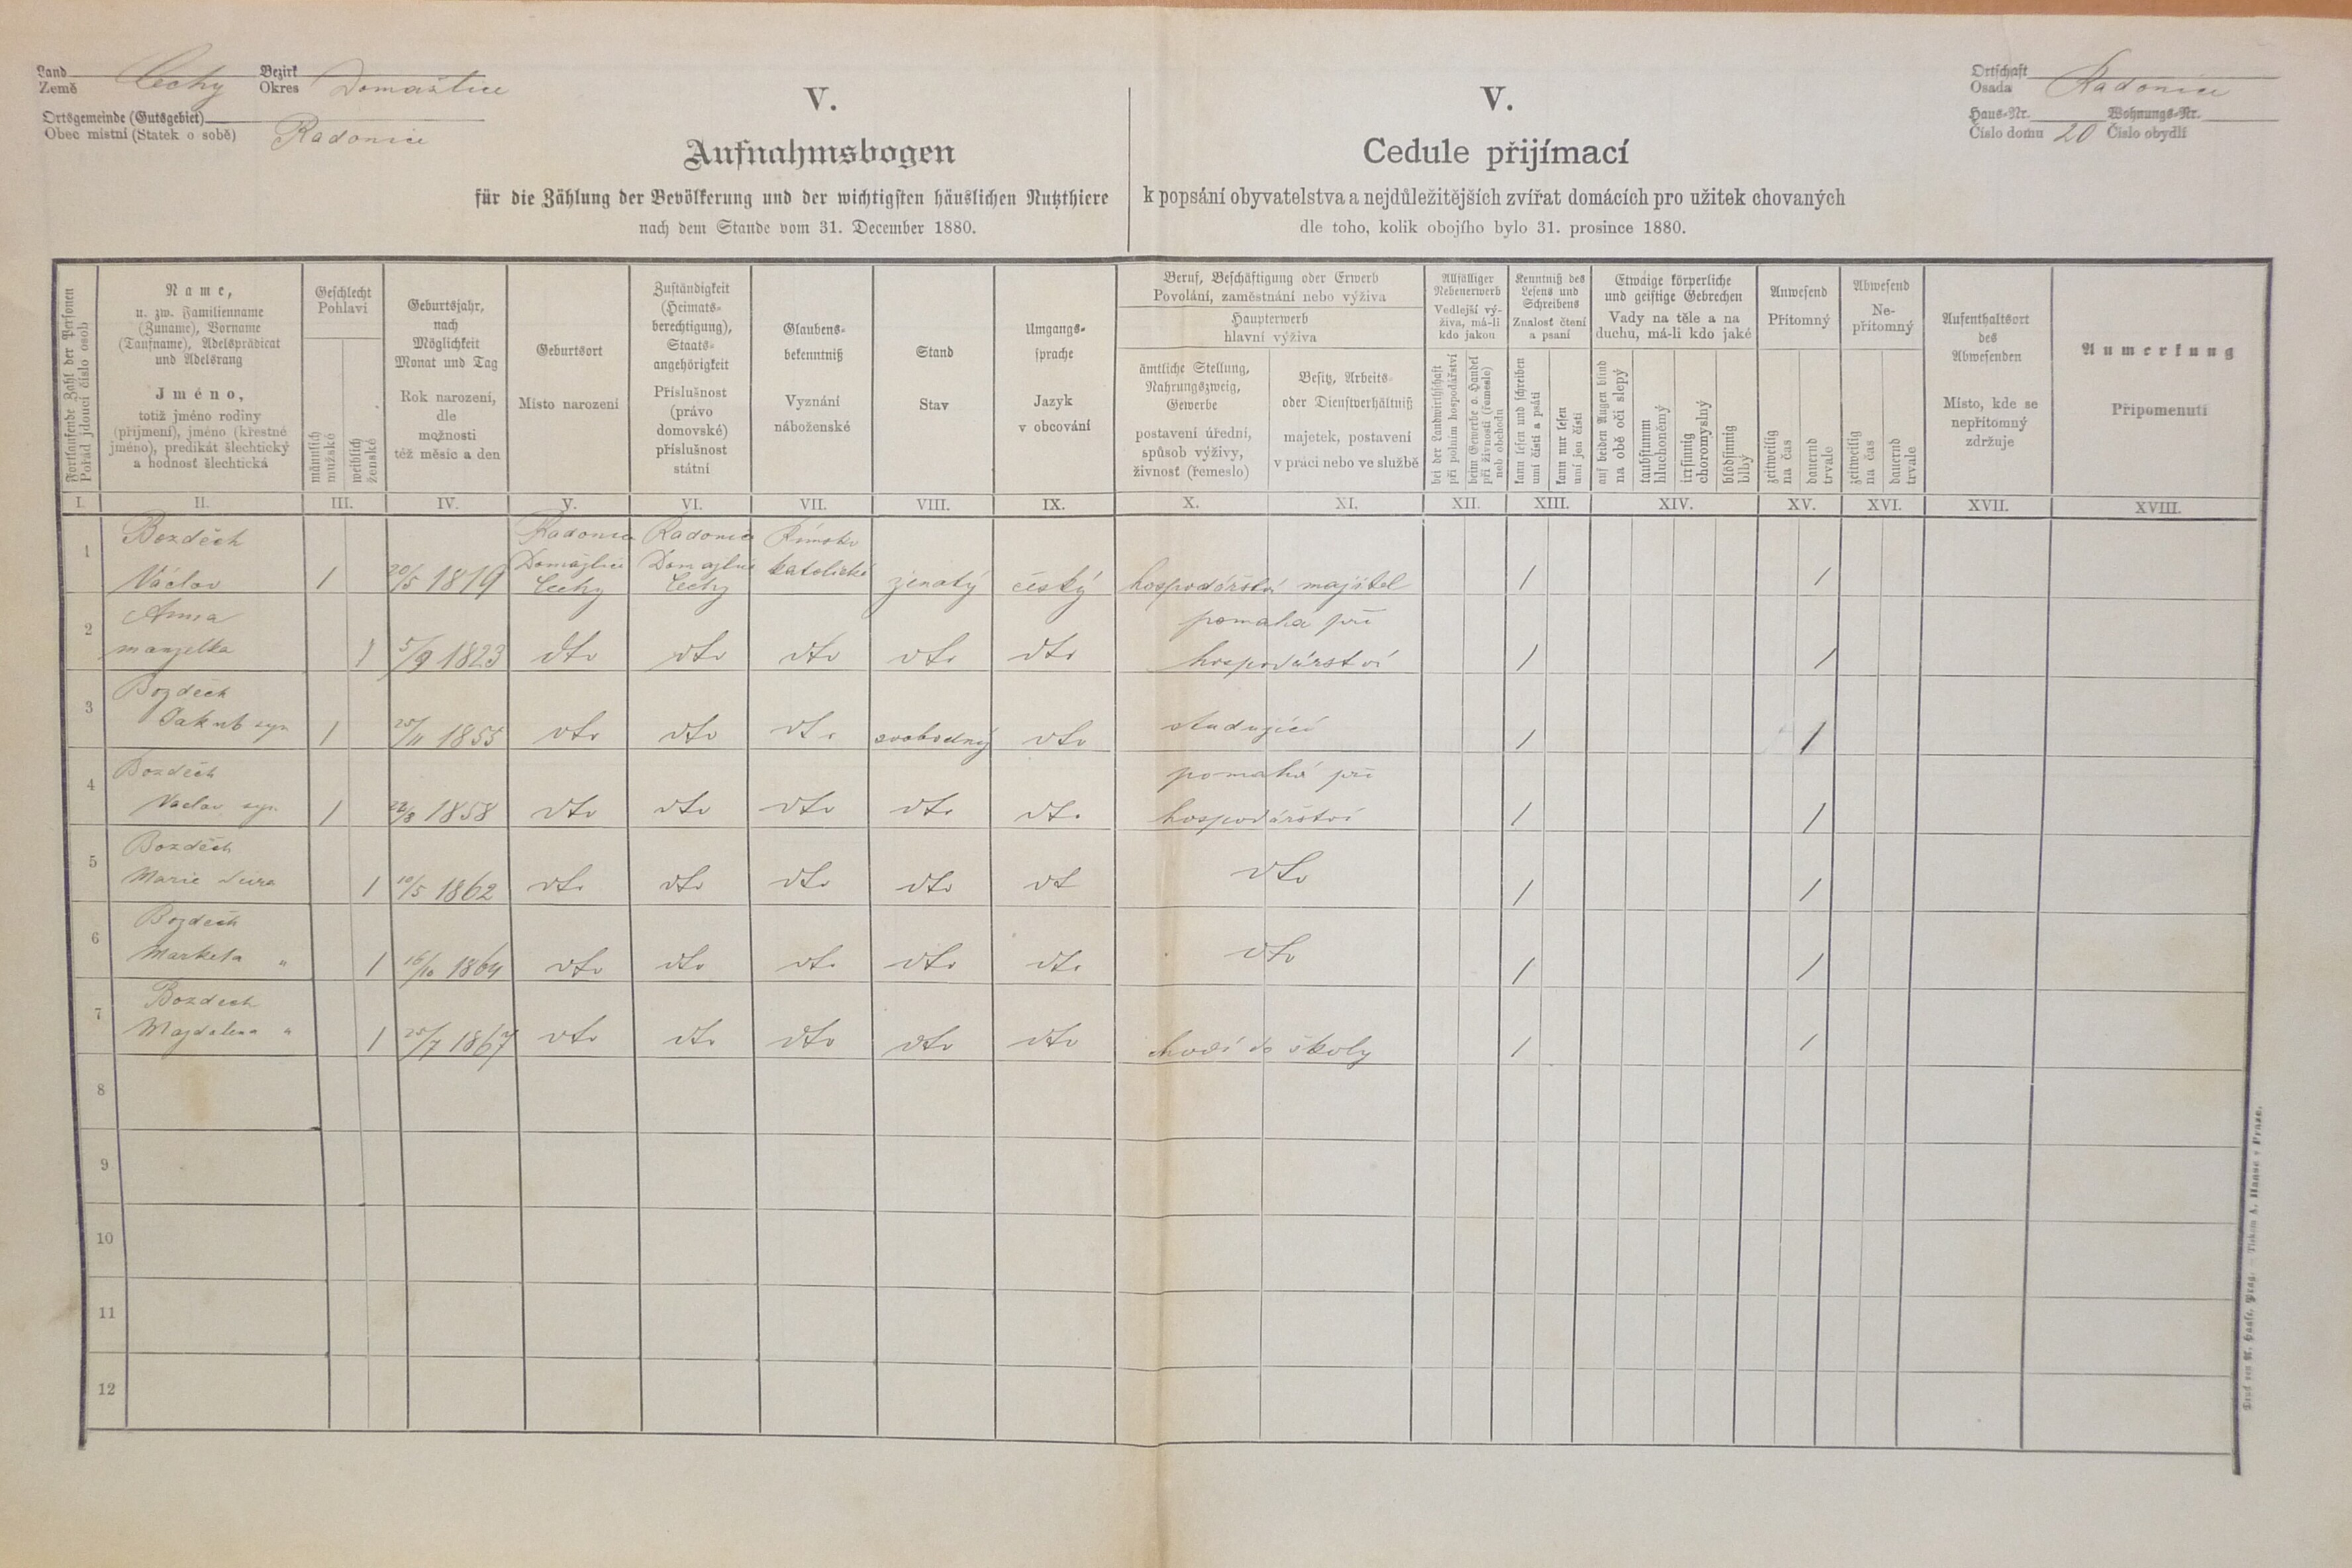 Land
Země Čechy
Bezirk
Okres Domažlice
Ortsgemeinde (Gutsgebiet)
Obec místní (Statek o sobě) Radonice
Ortschaft
Osada Radonice
Haus-Nr. Wohnungs-Nr.
Číslo domu 20 Číslo obydlí
V.
Aufnahmsbogen
für die Zählung der Bevölkerung und der wichtigsten häuslichen Nutzthiere
nach dem Stande vom 31. December 1880.
V.
Cedule přijímací
k popsání obyvatelstva a nejdůležitějších zvířat domácích pro užitek chovaných
dle toho, kolik obojího bylo 31. prosince 1880.
Fortlaufende Zahl der Personen
Pořád jdoucí číslo osob
Name,
u. zw. Familienname
(Zuname), Vorname
(Taufname), Adelsprädicat
und Adelsrang
Jméno,
totiž jméno rodiny
(příjmení), jméno (křestné
jméno), predikát šlechtický
a hodnost šlechtická
Geschlecht
Pohlaví
männlich
mužské
weiblich
ženské
Geburtsjahr,
nach
Möglichkeit
Monat und Tag
Rok narození,
dle
možnosti
též měsíc a den
Geburtsort
Místo narození
Zuständigkeit
(Heimats-
berechtigung),
Staats-
angehörigkeit
Příslušnost
(právo
domovské)
příslušnost
státní
Glaubens-
bekenntniß
Vyznání
náboženské
Stand
Stav
Umgangs-
sprache
Jazyk
v obcování
Beruf, Beschäftigung oder Erwerb
Povolání, zaměstnání nebo výživa
Haupterwerb
hlavní výživa
ämtliche Stellung,
Nahrungszweig,
Gewerbe
postavení úřední,
spůsob výživy,
živnost (řemeslo)
Besitz, Arbeits-
oder Dienstverhältniß
majetek, postavení
v práci nebo ve službě
Allfälliger
Nebenerwerb
Vedlejší vý-
živa, má-li
kdo jakou
bei der Landwirthschaft
při polním hospodářství
beim Gewerbe o. Handel
při živnosti (řemesle)
neb obchodu
Kenntniß des
Lesens und
Schreibens
Znalost čtení
a psaní
kann lesen und schreiben
umí čísti a psáti
kann nur lesen
umí jen čísti
Etwaige körperliche
und geistige Gebrechen
Vady na těle a na
duchu, má-li kdo jaké
auf beiden Augen blind
na obě oči slepý
taubstumm
hluchoněmý
irrsinnig
choromyslný
blödsinnig
blbý
Anwesend
Přítomný
zeitweilig
na čas
dauernd
trvale
Abwesend
Ne-
přítomný
zeitweilig
na čas
dauernd
trvale
Aufenthaltsort
des
Abwesenden
Místo, kde se
nepřítomný
zdržuje
Anmerkung
Připomenutí
I. II. III. IV. V. VI. VII. VIII. IX. X. XI. XII. XIII. XIV. XV. XVI. XVII. XVIII.
Bozděch Radonice Radonice Římsko
Domažlice Domažlice katolické
1 Václav 1 20/5 1819 Čechy Čechy ženatý český hospodářství majitel 1 1
Anna pomáhá při
2 manželka 1 5/9 1823 dto dto dto dto dto hospodářství 1 1
Bozděch
3 Jakub syn 1 25/11 1855 dto dto dto svobodný dto studující 1 1
Bozděch pomáhá při
4 Václav syn 1 22/8 1858 dto dto dto dto dto hospodářství 1 1
Bozděch
5 Marie dcera 1 10/5 1862 dto dto dto dto dt dto 1 1
Bozděch
6 Marketa " 1 16/10 1864 dto dto dto dto dto dto 1 1
Bozdech
7 Magdalena " 1 25/7 1867 dto dto dto dto dto chodí do školy 1 1
8
9
10
11
12
Druck von A. Haase, Prag. — Tiskem A. Haase v Praze.